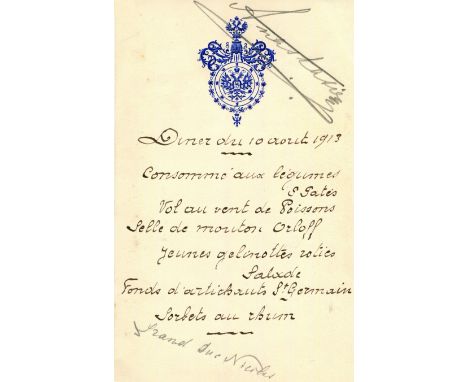 Anastasie
Diner du 10 aout 1913
Consommé aux légumes
& Patés
Vol au vent de Poissons
Selle de mouton Orloff
Jeunes gelinottes roties
Salade
Fonds d'artichauts St Germain
Sorbets au rhum
Grand Duc Nicolas